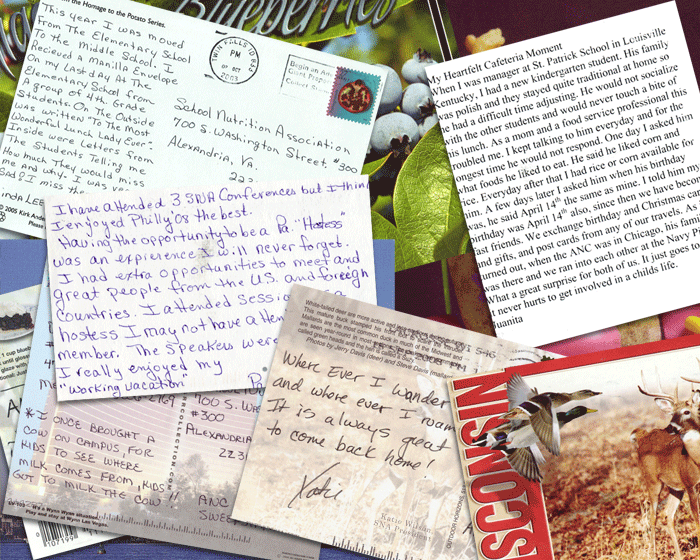 the Homage to the Potato Series.
Blueberries
This year I was moved
From The Elementary School
To the Middle School. I
Recieved a Manilla Envelope
On my Last day At The
Elementary School from
A group of 4th Grade
Students. On The Outside
was written "To The Most
Wonderful Lunch Lady Ever".
Inside were Letters from
The Students Telling me
How much They would miss
me and why. I was
Sad! I miss the
© 2005 Kirk
Please
TWIN FALLS ID
PM
OCT
2008
School Nutrition Association
700 S. Washington Street #300
Alexandria, Va
223
My Heartfelt Cafeteria Moment
When I was manager at St. Patrick School in Louisville
Kentucky, I had a new kindergarten student. His family
was polish and they stayed quite traditional at home so
he had a difficult time adjusting. He would not socialize
with the other students and would never touch a bite of
his lunch. As a mom and a food service professional this
oubled me. I kept talking to him everyday and for the
ongest time he would not respond. One day I asked him
what foods he liked to eat. He said he liked corn and
ice. Everyday after that I had rice or corn available for
m. A few days later I asked him when his birthday
was, he said April 14th the same as mine. I told him my
birthday was April 14th also, since then we have been
ast friends. We exchange birthday and Christmas car
nd gifts, and post cards from any of our travels. As
urned out, when the ANC was in Chicago, his fam
was there and we ran into each other at the Navy Pi
What a great surprise for both of us. It just goes to
t never hurts to get involved in a childs life.
uanita
I have attended 3 SNA Conferences but I thin
I enjoyed Philly '08 the best.
Having the opportunity to be a Pa. "Hostess"
was an expirience I will never forget.
I had extra opportunities to meet and
great people from the U.S. and foreign
Countries. I attended Sessio
hostess I may not have atten
member. The Speakers were
I really enjoyed my
"working vacation"
* I ONCE BROUGHT A
COW ON CAMPUS, FOR
KIDS TO SEE WHERE
MILK COMES FROM, KIDS
GOT TO MILK THE COW!!
2169
700 S. WAS
#300
ALEXANDRIA
223
ANC
SWEE
Play and stay at Wynn Las Vegas.
107199
Photos by Jerry Davis (deer) and Steve Davis
Where Ever I Wander
and where ever I roam
It is always great
to come back home!
Katie
Katie Wilson
SNA President
SCONSIN